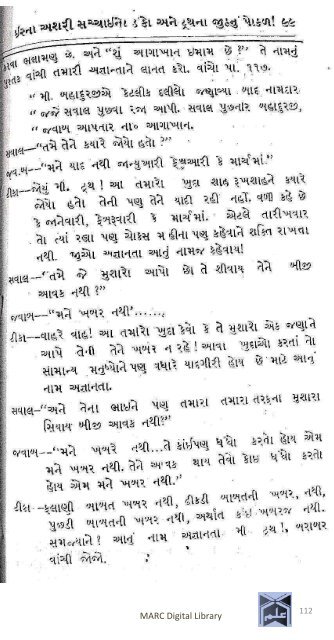 ઇસ્ના અશરી સચ્ચાઇનો ડંકો અને ટ્રથના જુઠનું પોકળ! ૯૯
સેવા ભલામણ છે. અને "શું આગાખાન ઇમામ છે?" તે નામનું
પુસ્તક વાંચી તમારી અજ્ઞાનતાને લાનત કરો. વાંચો પા. ૧૧૭.
"મી. બહાદુરજીએ કેટલીક દલીલો જણાવ્યા બાદ નામદાર
"જજે સવાલ પુછવા રજા આપી. સવાલ પુછનાર બહાદુરજી,
"જવાબ આપતાર ના૦ આગાખાન.
સવાલ—"તમે તેને ક્યારે જોયો હતો?"
જવાબ—"મને યાદ નથી જાન્યુઆરી ફેબ્રુઆરી કે માર્ચમાં."
ટીકા—જોયું મી. ટ્રથ! આ તમારો ખુદા શાહ રૂખશાહને ક્યારે
જોયો હતો તેની પણ તેને યાદી રહી નહીં, વળી કહે છે
કે જાનેવારી, ફેબ્રૂવારી કે માર્ચમાં. એટલે તારીખવાર
તો ત્યાં રહ્યા પણ ચોકસ મહીના પણ કહેવાને શક્તિ રાખતા
નથી. જુઓ અજ્ઞાનતા આનું નામજ કહેવાય!
સવાલ—"તમે જે મુશારો આપો છો તે શીવાય તેને બીજી
આવક નથી?"
જવાબ—"મને ખબર નથી'......
ટીકા—વાહરે વાહ! આ તમારો ખુદા કેવો કે તે મુશારો એક જણને
આપે તેની તેને ખબર ન રહે! આવા ખુદાઓ કરતાં તો
સામાન્ય મનુષ્યોને પણ વધારે યાદગીરી હોય છે માટે આનું
નામ અજ્ઞાનતા.
સવાલ—"અને તેના ભાઇને પણ તમારા તમારા તરફના મુશારા
સિવાય બીજી આવક નથી?"
જવાબ—"મને ખબર નથી...તે કાંઇપણ ધંધો કરતો હોય એમ
મને ખબર નથી. તેને આવક થાય તેવો કાંઇ ધંધો કરતો
હોય એમ મને ખબર નથી."
ટીકા—ફલાણી બાબત ખબર નથી, ઢીકડી બાબતની ખબર, નથી,
પુછડી બાબતની ખબર નથી, અર્થાત કંઇ ખબરજ નથી.
સમજ્યાને! આનું નામ અજ્ઞાનતા મી ટ્રથ!, બરાબર
વાંચી જોજો.
MARC Digital Library
112